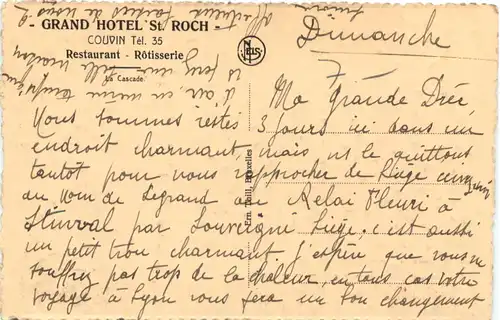 - GRAND HOTEL St. ROCH -
COUVIN Tél. 35
Restaurant - Rôtisserie
La Cascade
NELS
Ern. Thill, Bruxelles
Dimanche
7
Ma Grande
Nous sommes restés 3 jours ici dans un
endroit charmant mais ns le quittons
tantôt pour nous rapprocher de Liège
du nom de Legrand au Relai Fleuri à
par Louveigné Liège. c'est aussi
un petit trou charmant. J'espère que vous ne
souffrez pas trop de la chaleur, en tous cas votre
voyage à Lyon vous fera un bon changement
d'air, en même
affectueux de nous 2